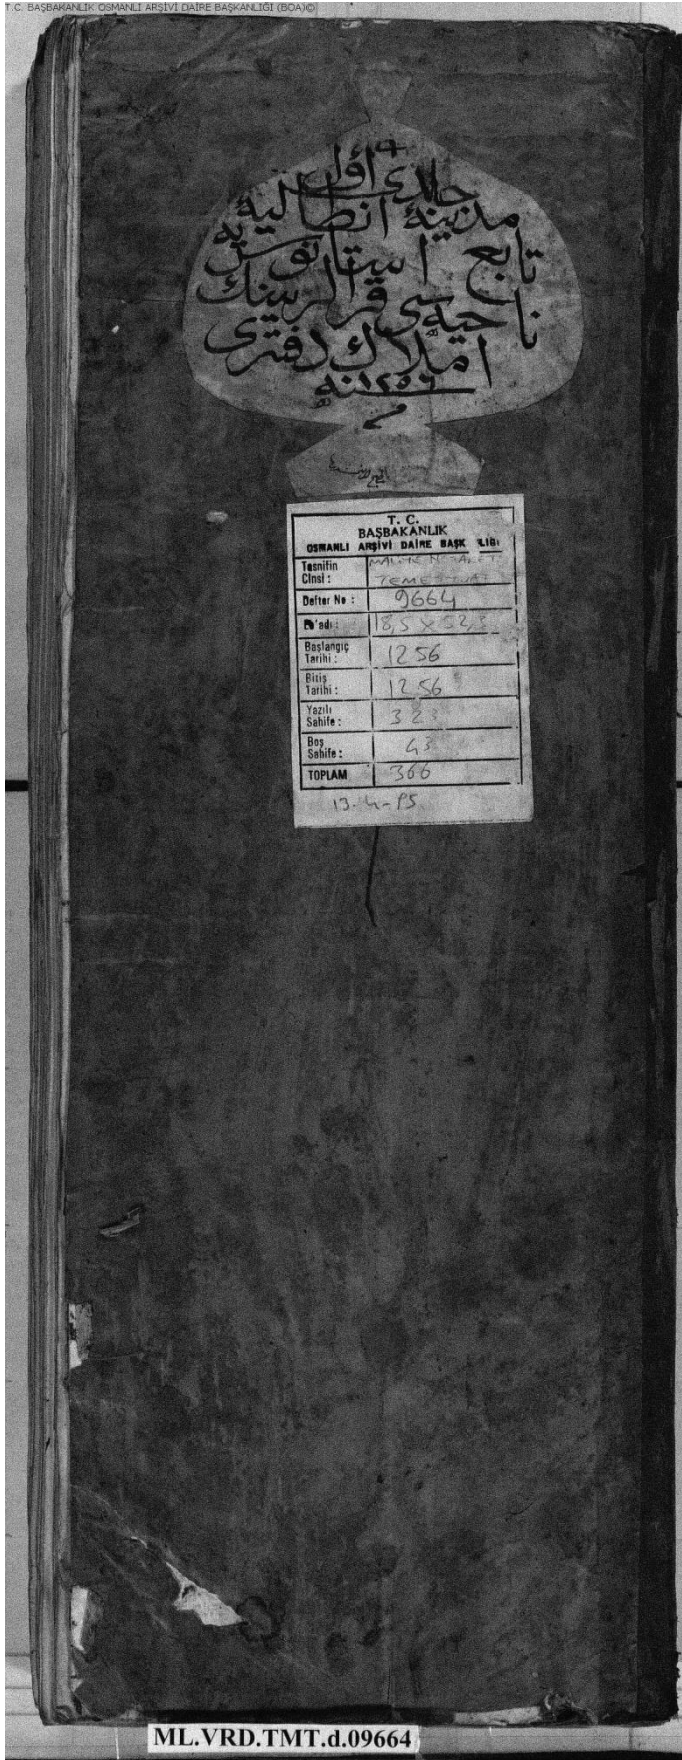 T.C. BAŞBAKANLIK OSMANLI ARŞİVİ DAİRE BAŞKANLIĞI (BOA)©
جلدى اول
مدينۀ انطاليه يه
تابع استانوس
ناحيه سى قرالرينك
املاك دفترى
سنه ١٢٥٦
T. C.
BAŞBAKANLIK
OSMANLI ARŞİVİ DAİRE BAŞK LIĞI
Tasnifin Cinsi : MALİYE NEZARETİ TEMETTUAT
Defter No : 9664
Eb'adı : 18,5 x 52,
Başlangıç Tarihi : 1256
Bitiş Tarihi : 1256
Yazılı Sahife : 323
Boş Sahife : 43
TOPLAM 366
13-4-95
ML.VRD.TMT.d.09664